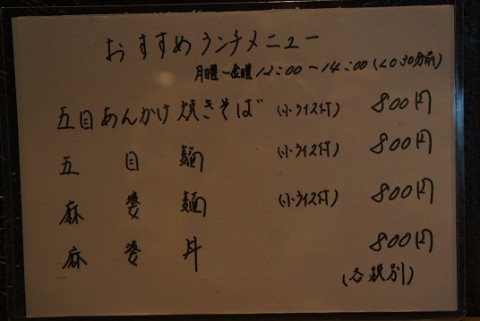 おすすめランチメニュー
月曜〜金曜 12:00〜14:00 (L.O 30分前)
五目あんかけ焼きそば (小ライス付) 800円
五目麺 (小ライス付) 800円
麻婆麺 (小ライス付) 800円
麻婆丼 800円
(各税別)